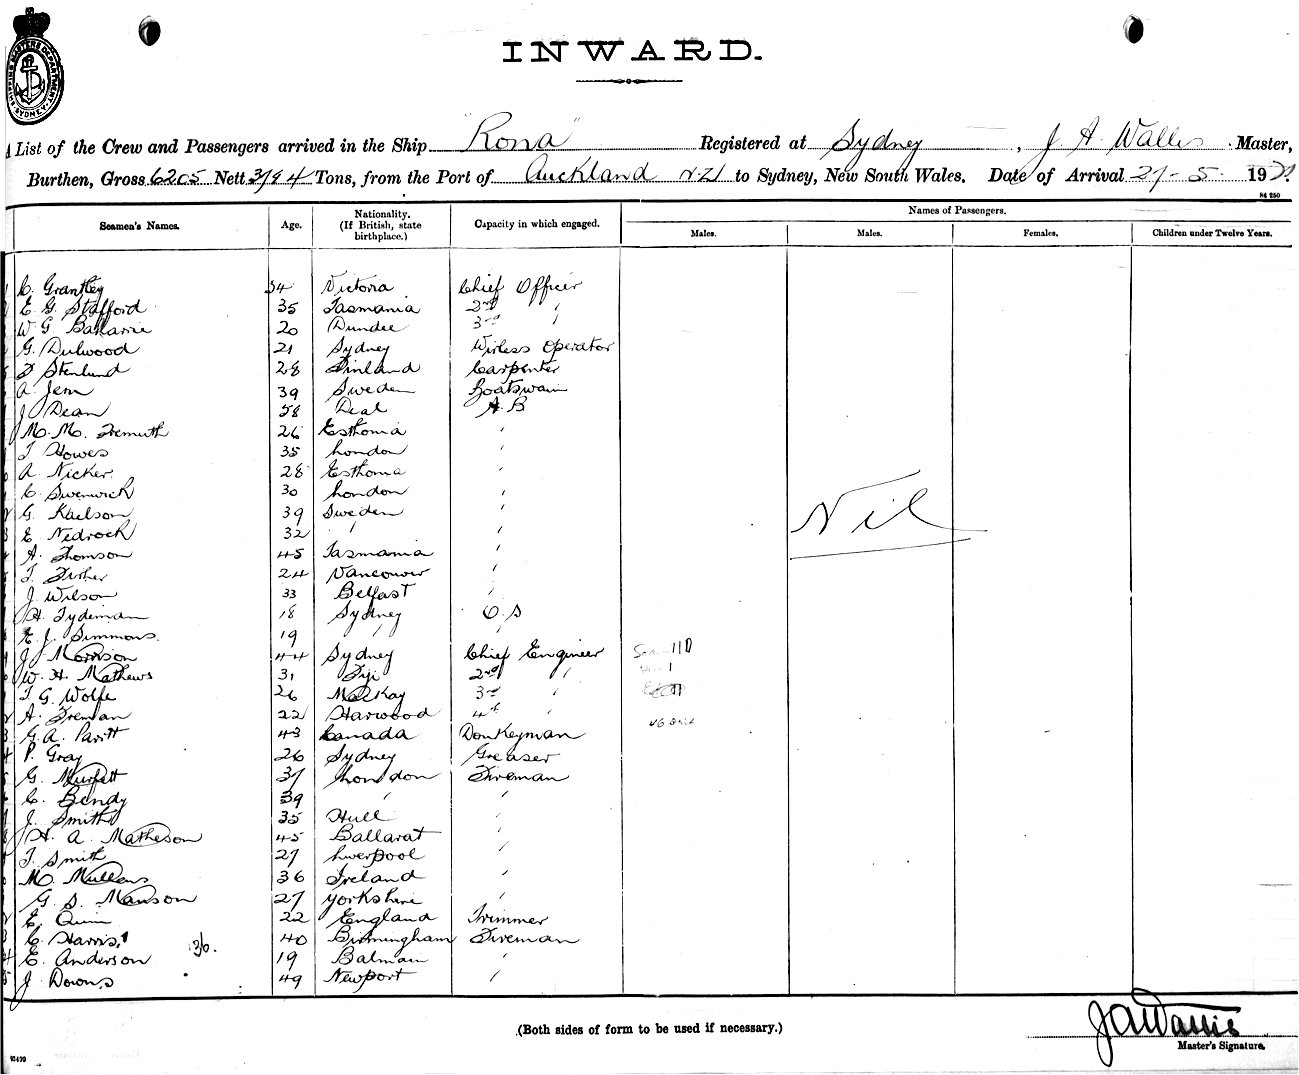 SHIPPING MASTERS DEPARTMENT SYDNEY
INWARD.
A List of the Crew and Passengers arrived in the Ship "Rona" Registered at Sydney, J A Wallis Master,
Burthen, Gross 6205 Nett 3784 Tons, from the Port of Auckland N.Z. to Sydney, New South Wales. Date of Arrival 21-5- 192
84 250
Seamen's Names. Age. Nationality. (If British, state birthplace.) Capacity in which engaged. Names of Passengers.
Males. Males. Females. Children under Twelve Years.
C. Grantley 34 Victoria Chief Officer
E. G. Stafford 35 Tasmania 2nd "
W. G. Ballarie 20 Dundee 3rd "
G. Dulwood 21 Sydney Wirless Operator
Stenlund 28 Finland Carpenter
A. Jern 39 Sweden Boatswain
J Dean 58 Deal A B
M. M. Tremuth 26 Esthonia "
T Howes 35 London "
A. Nicker 28 Esthonia
C. Swenwick 30 London "
G. Kaelson 39 Sweden "
E Nedrock 32 " "
A. Thomson 45 Tasmania "
T. Fisher 24 Vancouver "
J Wilson 33 Belfast "
H. Tydeman 18 Sydney O.S
E. J. Simmons. 19 "
J Morrison 44 Sydney Chief Engineer
W. H. Mathews 31 Fiji 2nd "
T. G. Wolfe 26 McKay 3rd "
A. Freman 22 Harwood 4th "
G. A. Paritt 43 Canada Donkeyman
P. Gray 26 Sydney Greaser
G. Murfatt 37 London Fireman
C. Bendy 39 " "
J. Smith 35 Hull "
H. A. Matheson 45 Ballarat "
T. Smith 27 Liverpool "
M. Mullens 36 Ireland "
G. S. Manson 27 Yorkshire "
E. Quin 22 England Trimmer
C. Harris 40 Birmingham Fireman
E. Anderson 36. 19 Balmain "
J Downs 49 Newport "
Nil
(Both sides of form to be used if necessary.)
J A Wallis
Master's Signature.